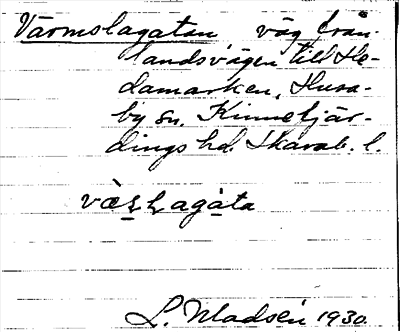 Värmslagatan väg från
landsvägen till He-
damarken, Husa-
by sn, Kinnefjär-
dings hd. Skarab. l.
L. Madsén 1930.